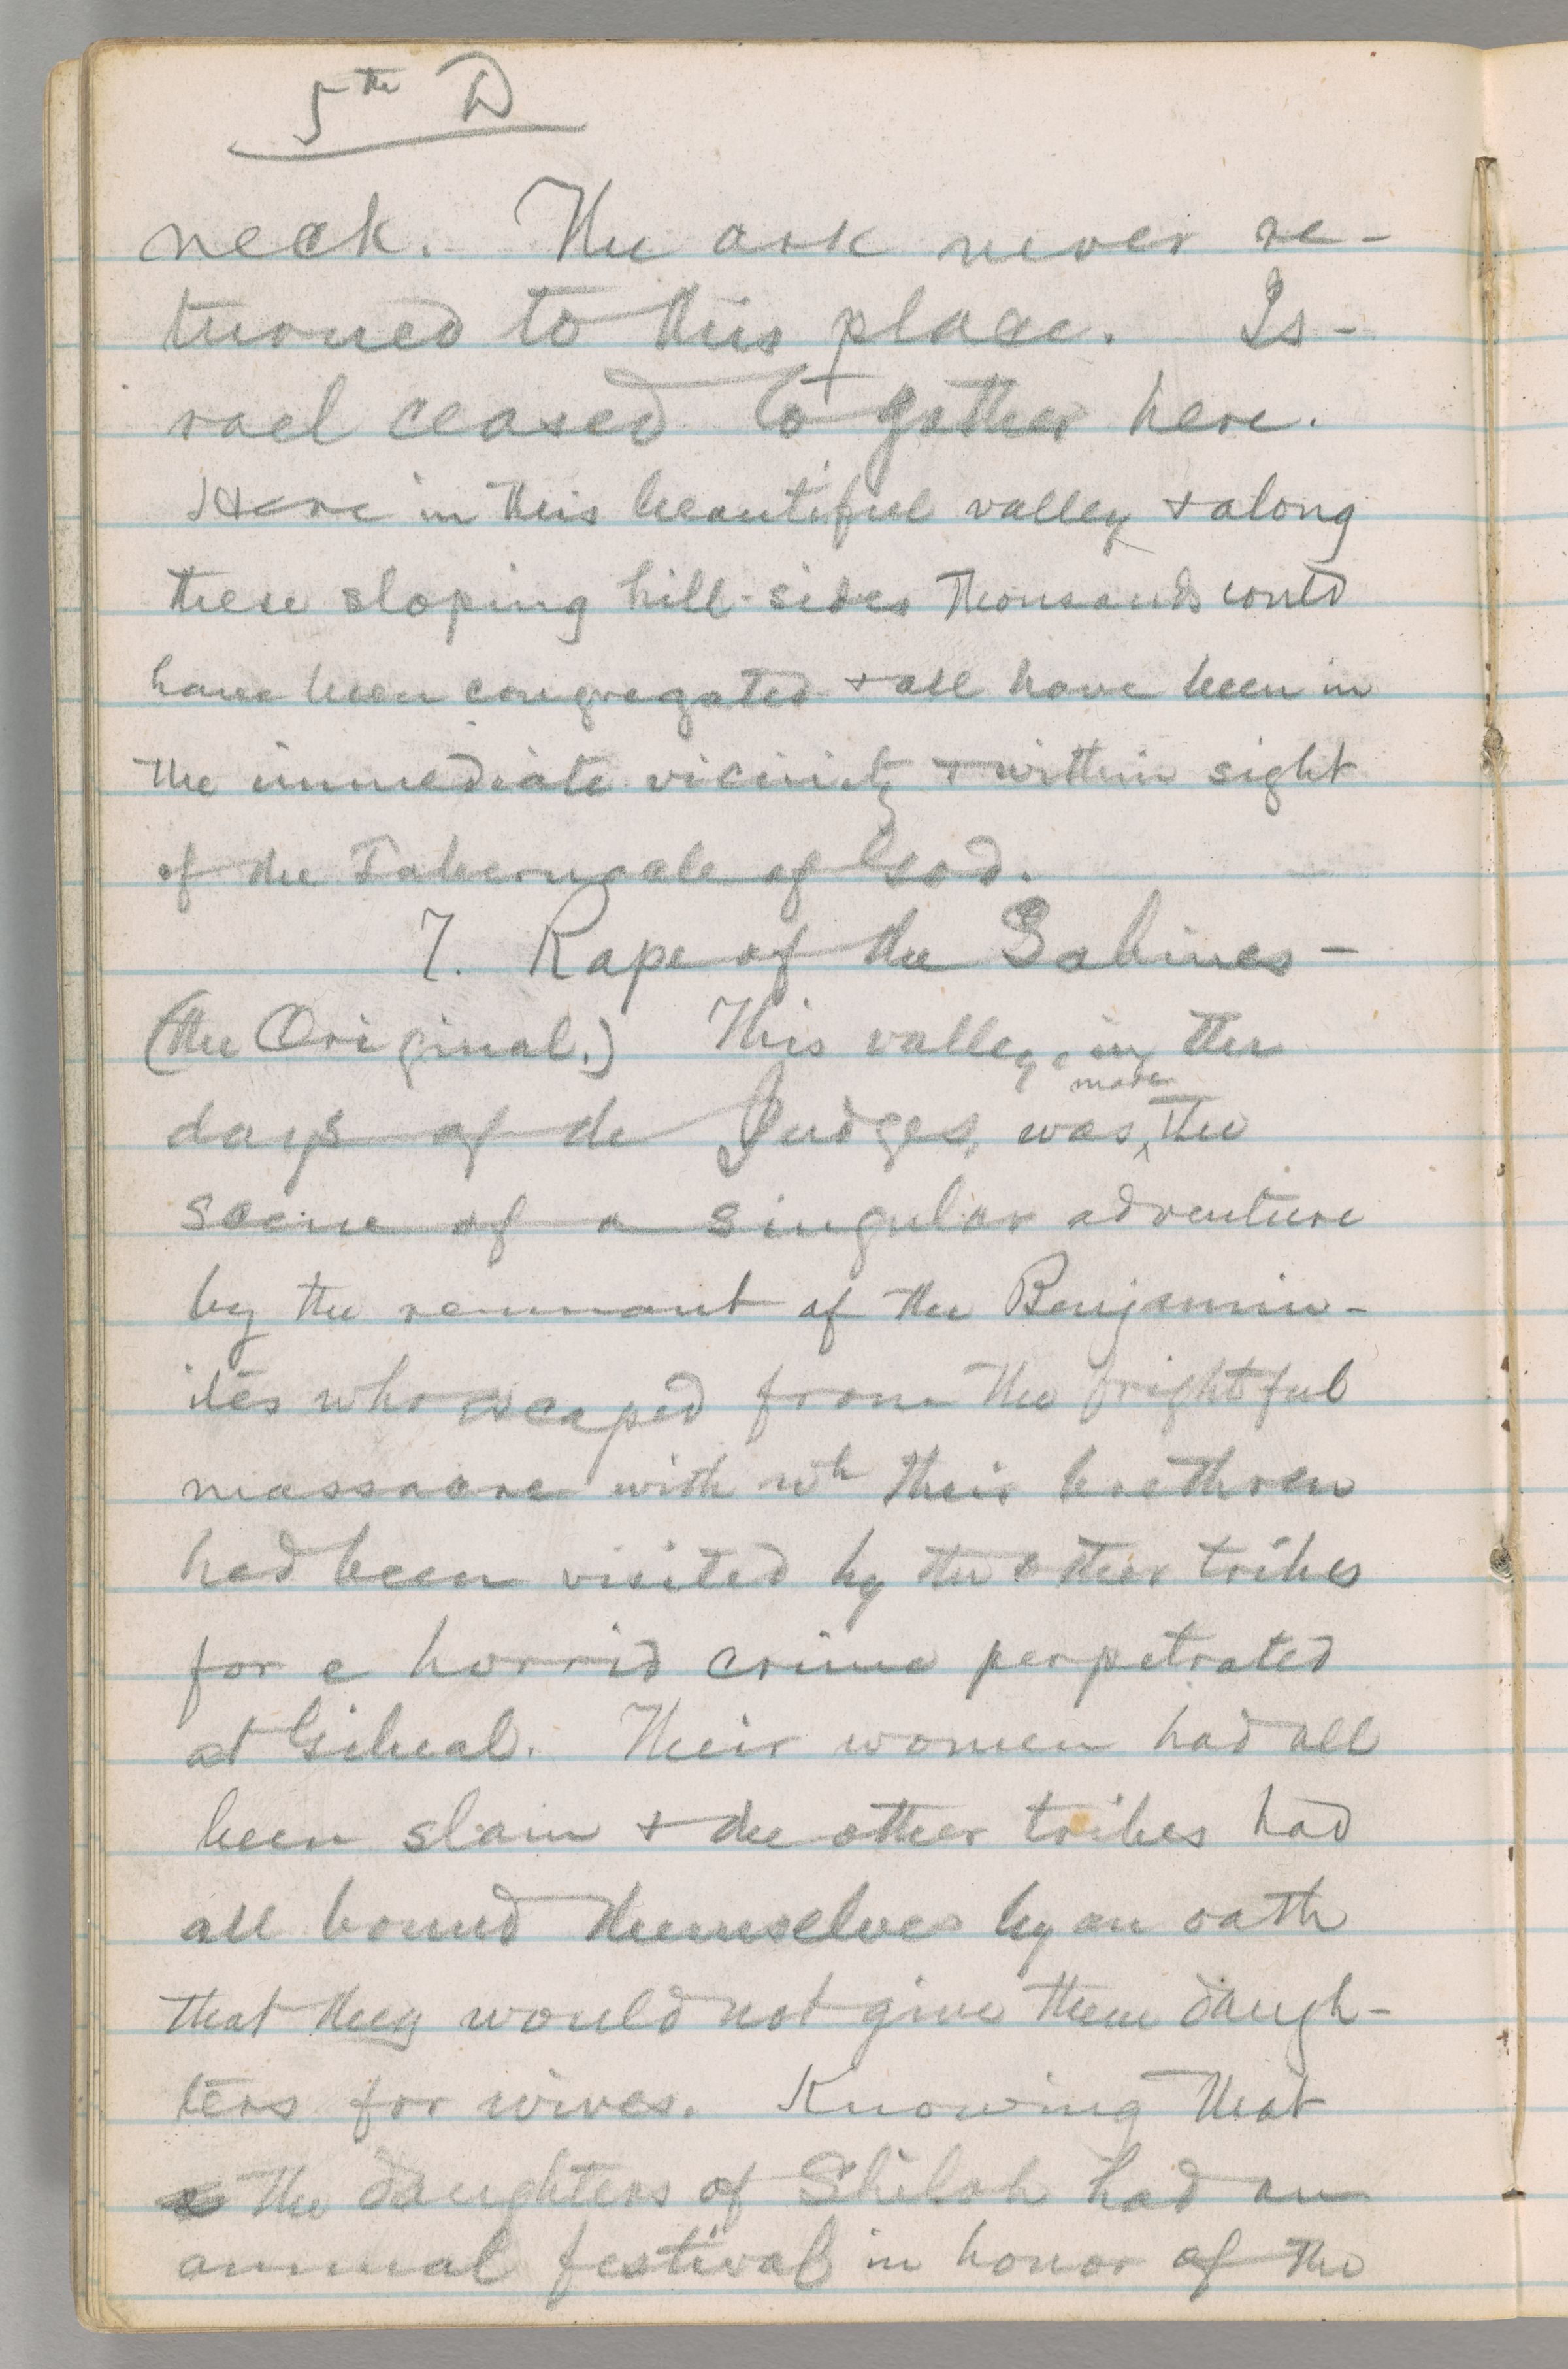 5th D
neck. The ark never re-
turned to this place. Is-
rael ceased to gather here.
Here in this beautiful valley & along
these sloping hill-sides thousands could
have been congregated & all have been in
the immediate vicinity & within sight
of the Tabernacle of God.
7. Rape of the Sabines-
(the Original.) This valley, in the
days of the Judges, was made the
scene of a singular adventure
by the remnant of the Benjamin-
ites who escaped from the frightful
massacre with wh their brethren
had been visited by the other tribes
for a horrid crime perpetrated
at Gibeah. Their women had all
been slain & the other tribes had
all bound themselves by an oath
that they would not give them daugh-
ters for wives. Knowing that
the daughters of Shiloh had an
annual festival in honor of the